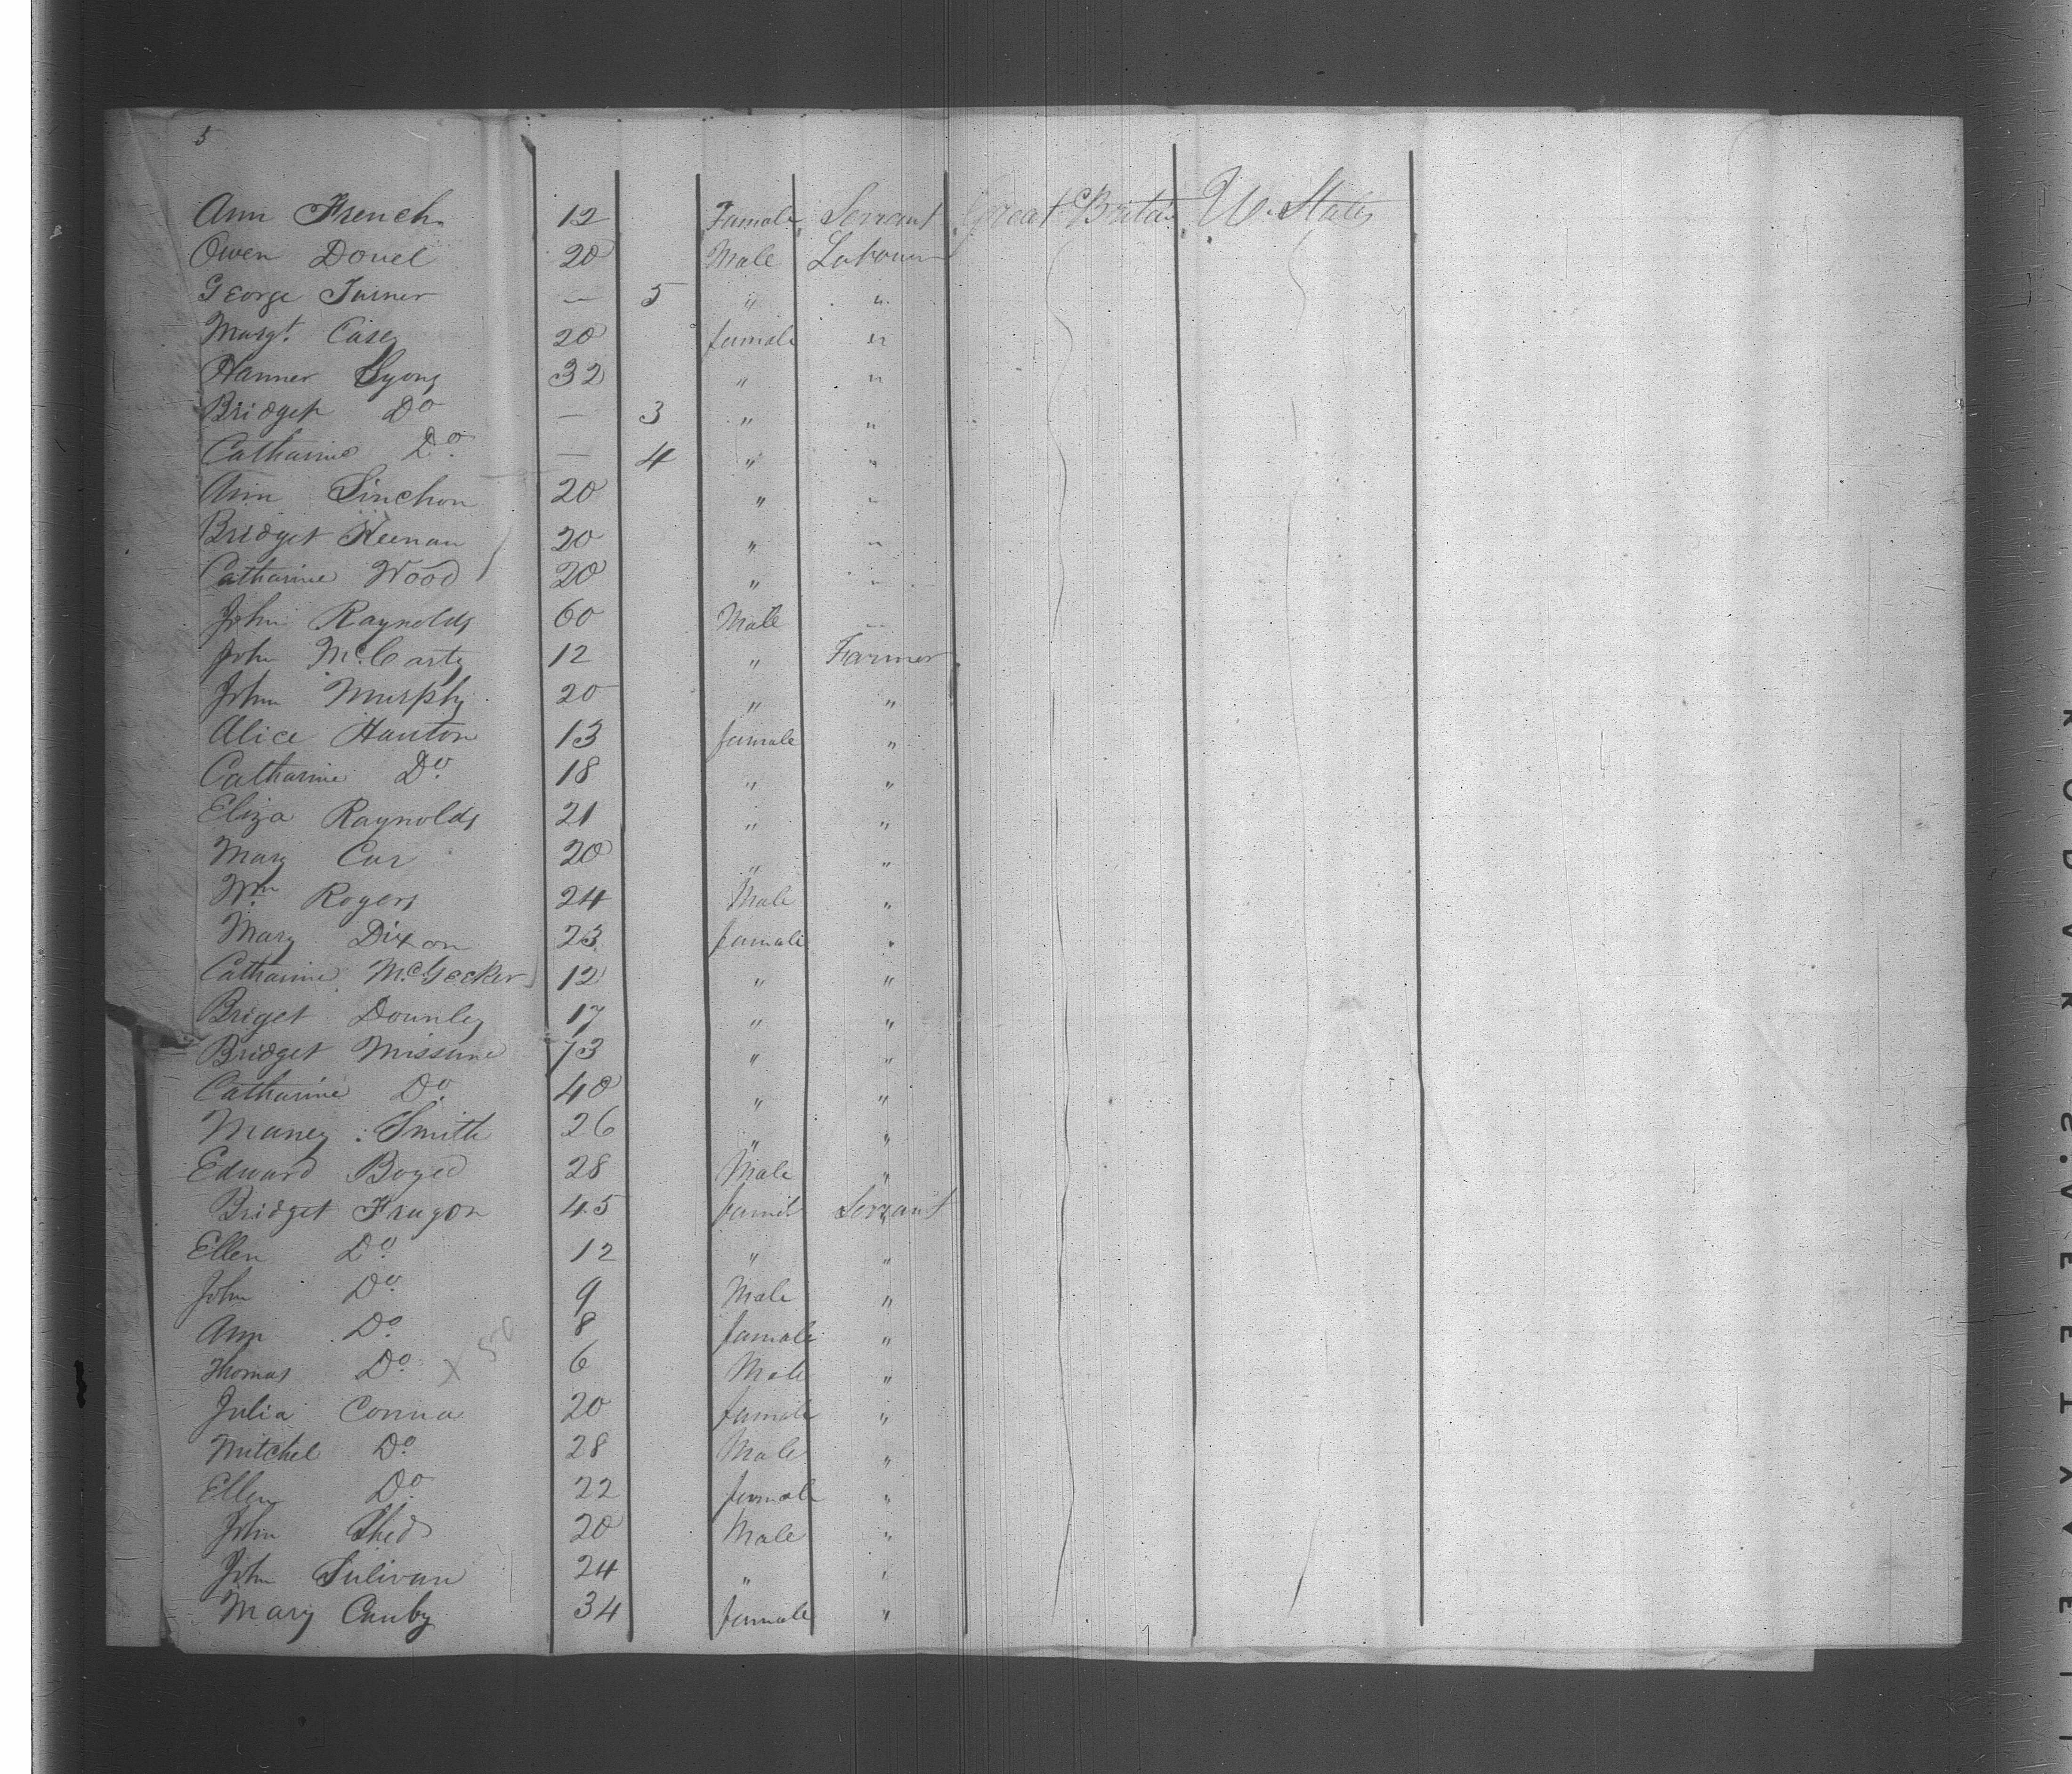 5
Ann French 12 Female Servant Great Britain U. States
Owen Donel 20 Male Labourer
George Turner — 5 " "
Margt. Casey 20 female "
Hanner Lyons 32 " "
Bridget Do — 3 " "
Catharine Do. — 4 " "
Ann Linchon 20 " "
Bridget Keenan 20 " "
Catharine Wood 20 " "
John Raynolds 60 Male "
John McCarty 12 " Farmer
John Murphy 20 " "
Alice Hanton 13 female "
Catharine Do. 18 " "
Eliza Raynolds 21 " "
Mary Car 20 " "
Wm Rogers 24 Male "
Mary Dixon 23 female "
Catharine McGecker 12 " "
Briget Dounley 17 " "
Bridget Missune 13 " "
Catharine Do. 40 " "
Maney Smith 26 " "
Edward Boyed 28 Male "
Bridget Frugon 45 female Servant
Ellen Do. 12 " "
John Do. 9 Male "
Ann Do. 8 female "
Thomas Do. X 50 6 Male "
Julia Conna 20 female "
Mitchel Do. 28 Male "
Ellen Do. 22 female "
John Shed 20 Male "
John Sulivan 24 " "
Mary Canby 34 female "